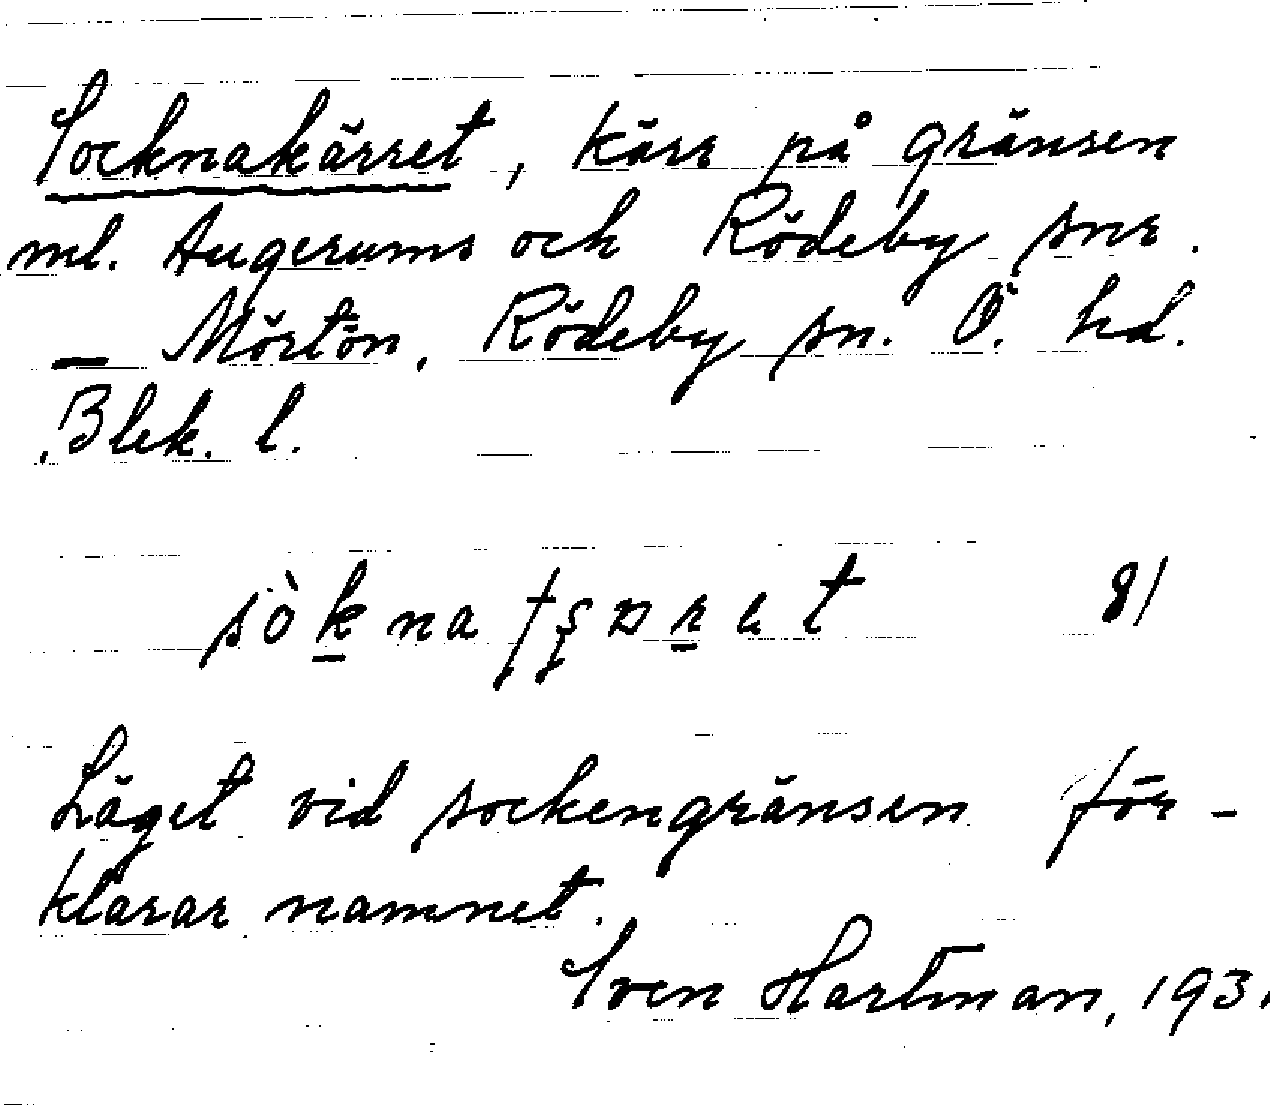 Socknakärret, kärr på gränsen
ml. Augerums och Rödeby snr.
— Mörtön, Rödeby sn. Ö. hd.
Blek. l.
81
Läget vid sockengränsen för-
klarar namnet.
Sven Hartman, 1931